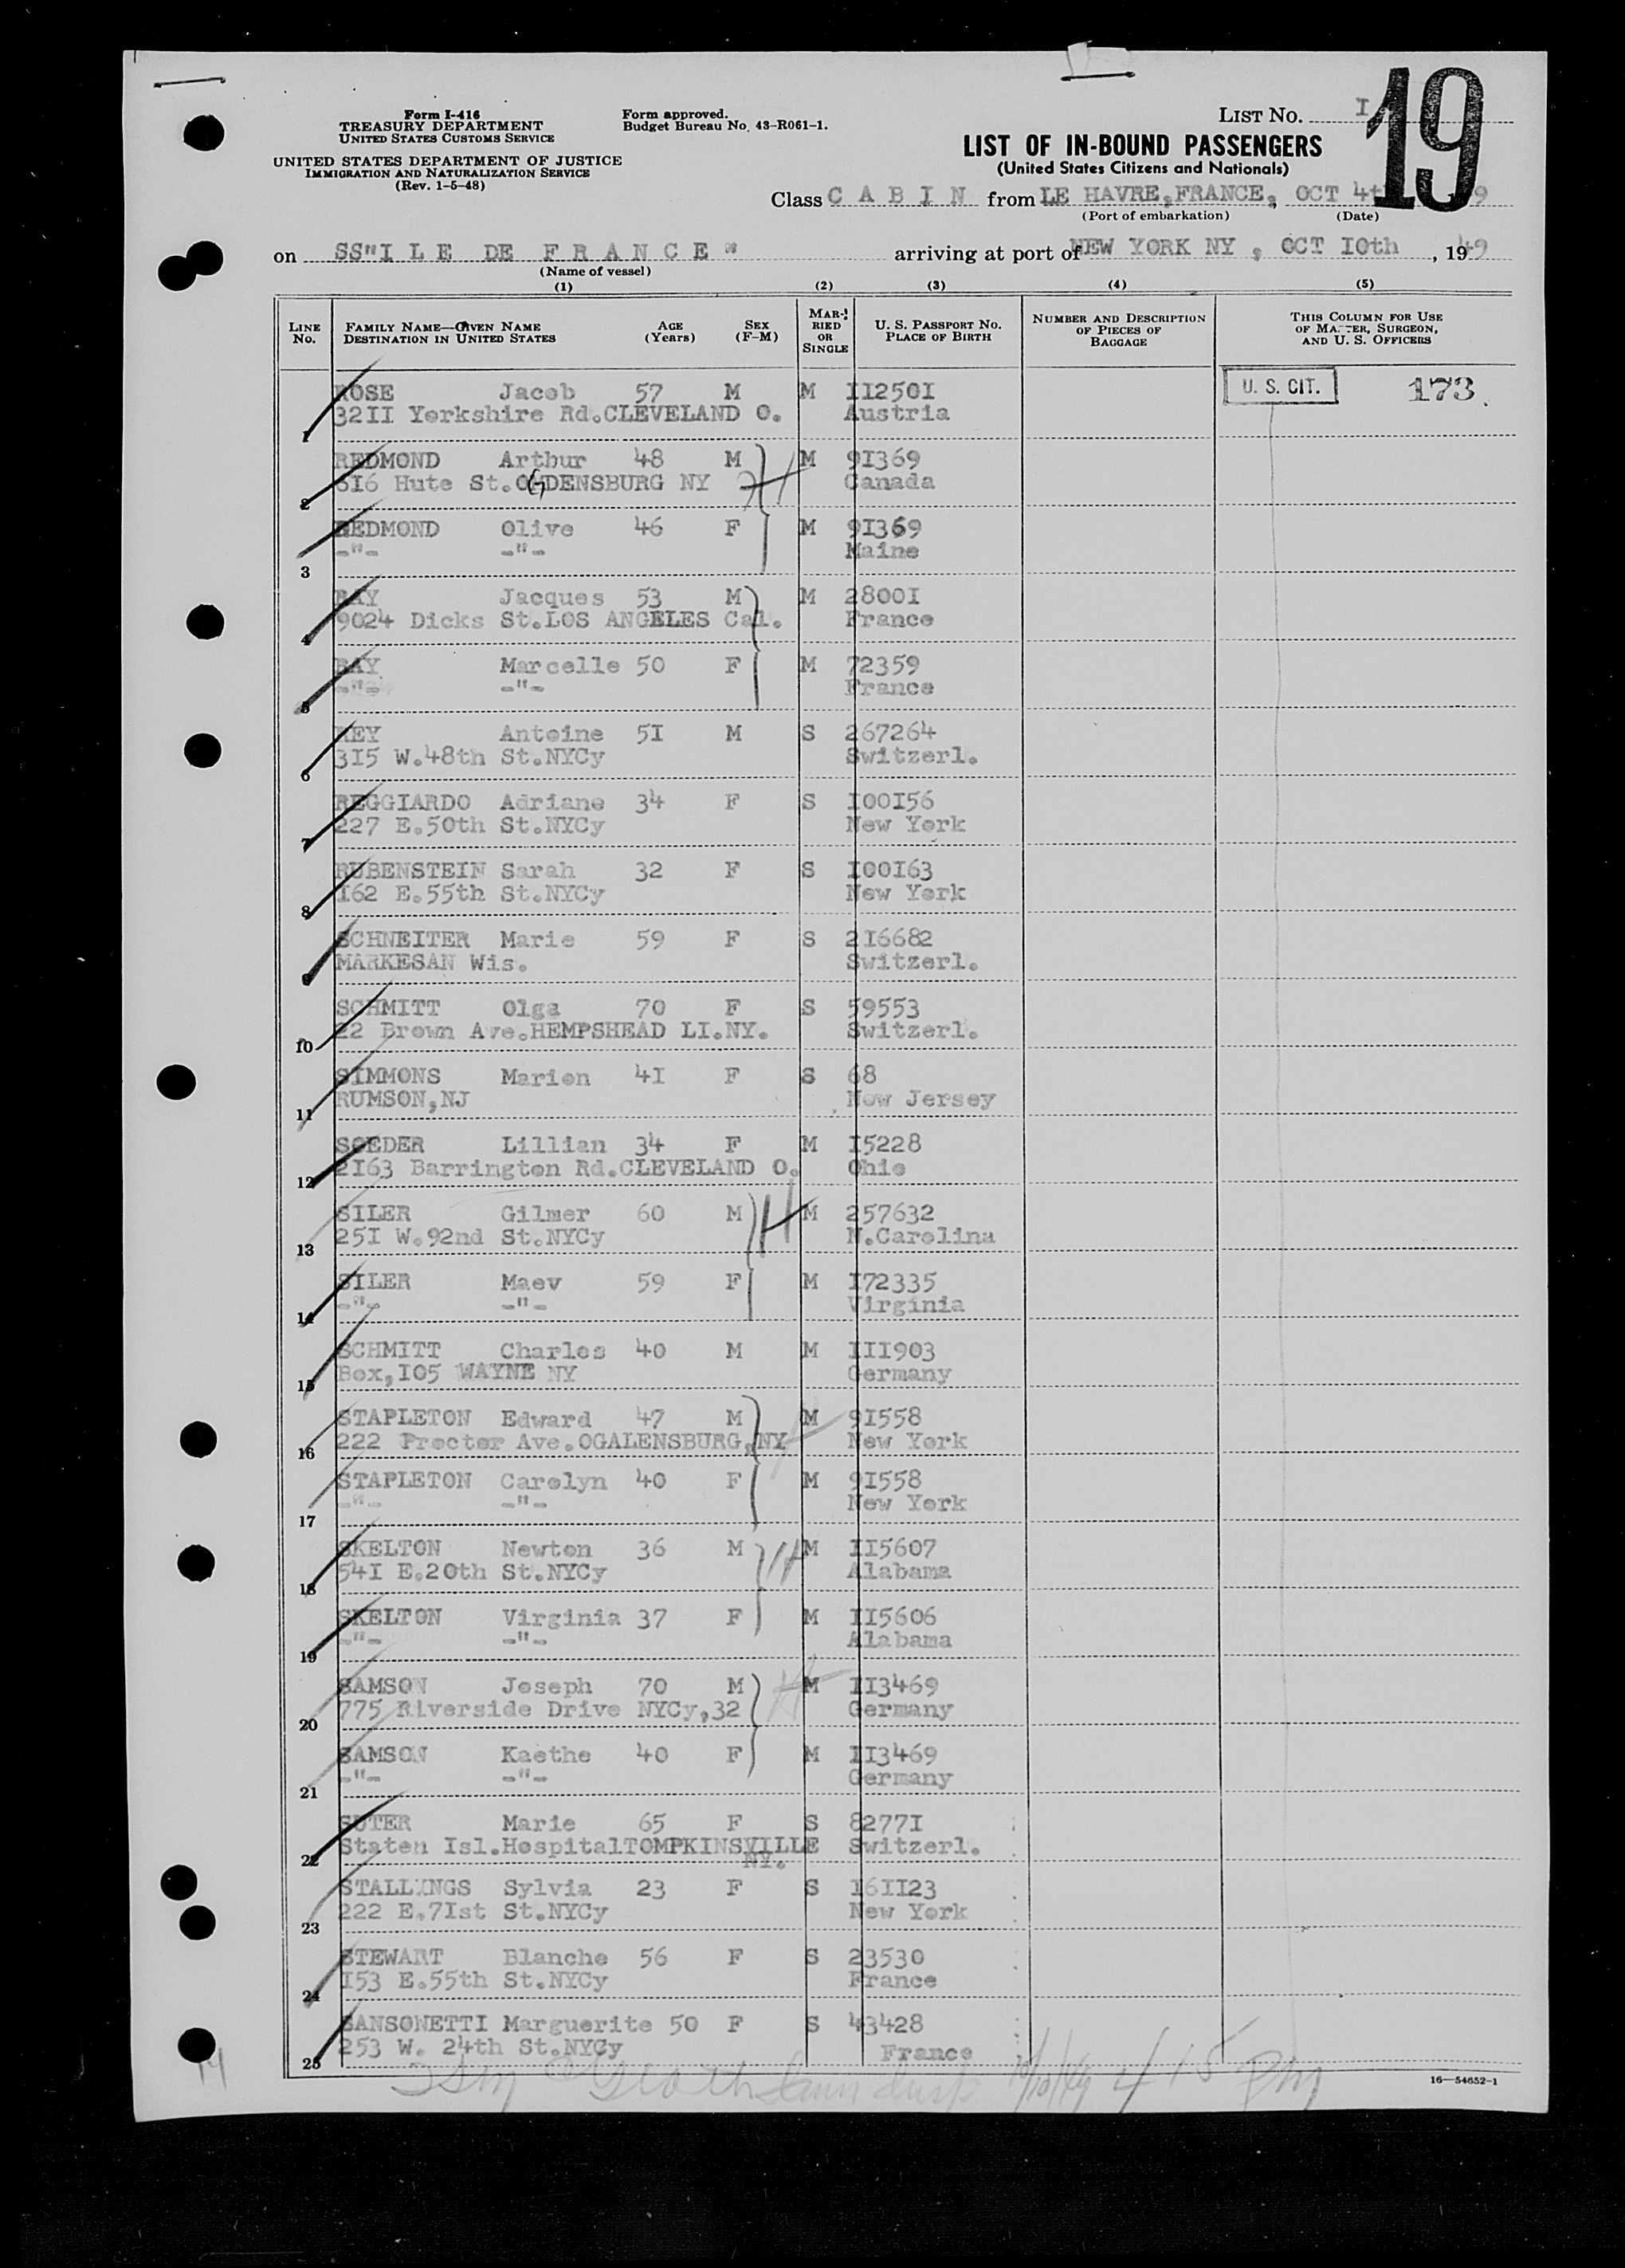 Form I-416
TREASURY DEPARTMENT
UNITED STATES CUSTOMS SERVICE
UNITED STATES DEPARTMENT OF JUSTICE
IMMIGRATION AND NATURALIZATION SERVICE
(Rev. 1-5-48)
Form approved.
Budget Bureau No. 43-R061-1.
LIST No. I
19
LIST OF IN-BOUND PASSENGERS
(United States Citizens and Nationals)
Class C A B I N from LE HAVRE,FRANCE, OCT 4th 9
(Port of embarkation) (Date)
on SS"I L E DE F R A N C E " arriving at port of NEW YORK NY , OCT I0th , 1949
(Name of vessel)
(1) (2) (3) (4) (5)
LINE No. FAMILY NAME—GIVEN NAME DESTINATION IN UNITED STATES AGE (Years) SEX (F-M) MARRIED OR SINGLE U. S. PASSPORT NO. PLACE OF BIRTH NUMBER AND DESCRIPTION OF PIECES OF BAGGAGE THIS COLUMN FOR USE OF MASTER, SURGEON, AND U. S. OFFICERS
ROSE Jacob 57 M M II250I U. S. CIT. 173.
1 32II Yorkshire Rd.CLEVELAND O. Austria
REDMOND Arthur 48 M M 9I369
2 6I6 Hute St.OGDENSBURG NY Canada
REDMOND Olive 46 F M 9I369
-"- -"- Maine
3
RAY Jacques 53 M M 2800I
4 9024 Dicks St.LOS ANGELES Cal. France
RAY Marcelle 50 F M 72359
5 -"- -"- France
REY Antoine 5I M S 267264
6 3I5 W.48th St.NYCy Switzerl.
REGGIARDO Adriane 34 F S I00I56
7 227 E.50th St.NYCy New York
RUBENSTEIN Sarah 32 F S I00I63
8 I62 E.55th St.NYCy New York
SCHNEITER Marie 59 F S 2I6682
9 MARKESAN Wis. Switzerl.
SCHMITT Olga 70 F S 59553
10 22 Brown Ave.HEMPSHEAD LI.NY. Switzerl.
SIMMONS Marion 4I F S 68
11 RUMSON,NJ New Jersey
SOEDER Lillian 34 F M I5228
12 2I63 Barrington Rd.CLEVELAND O. Ohio
SILER Gilmer 60 M M 257632
13 25I W.92nd St.NYCy N.Carolina
SILER Maev 59 F M I72335
14 -"- -"- Virginia
SCHMITT Charles 40 M M III903
15 Box,I05 WAYNE NY Germany
STAPLETON Edward 47 M M 9I558
16 222 Procter Ave.OGALENSBURG,NY New York
STAPLETON Carolyn 40 F M 9I558
-"- -"- New York
17
SKELTON Newton 36 M M II5607
18 54I E.20th St.NYCy Alabama
SKELTON Virginia 37 F M II5606
19 -"- -"- Alabama
SAMSON Joseph 70 M M II3469
20 775 Riverside Drive NYCy,32 Germany
SAMSON Kaethe 40 F M II3469
21 -"- -"- Germany
SUTER Marie 65 F S 8277I
22 Staten Isl.HospitalTOMPKINSVILLE NY. Switzerl.
STALLINGS Sylvia 23 F S I6II23
23 222 E.7Ist St.NYCy New York
STEWART Blanche 56 F S 23530
24 I53 E.55th St.NYCy France
SANSONETTI Marguerite 50 F S 43428
25 253 W. 24th St.NYCy France
10/10/49 4 15 PM
16—54652-1